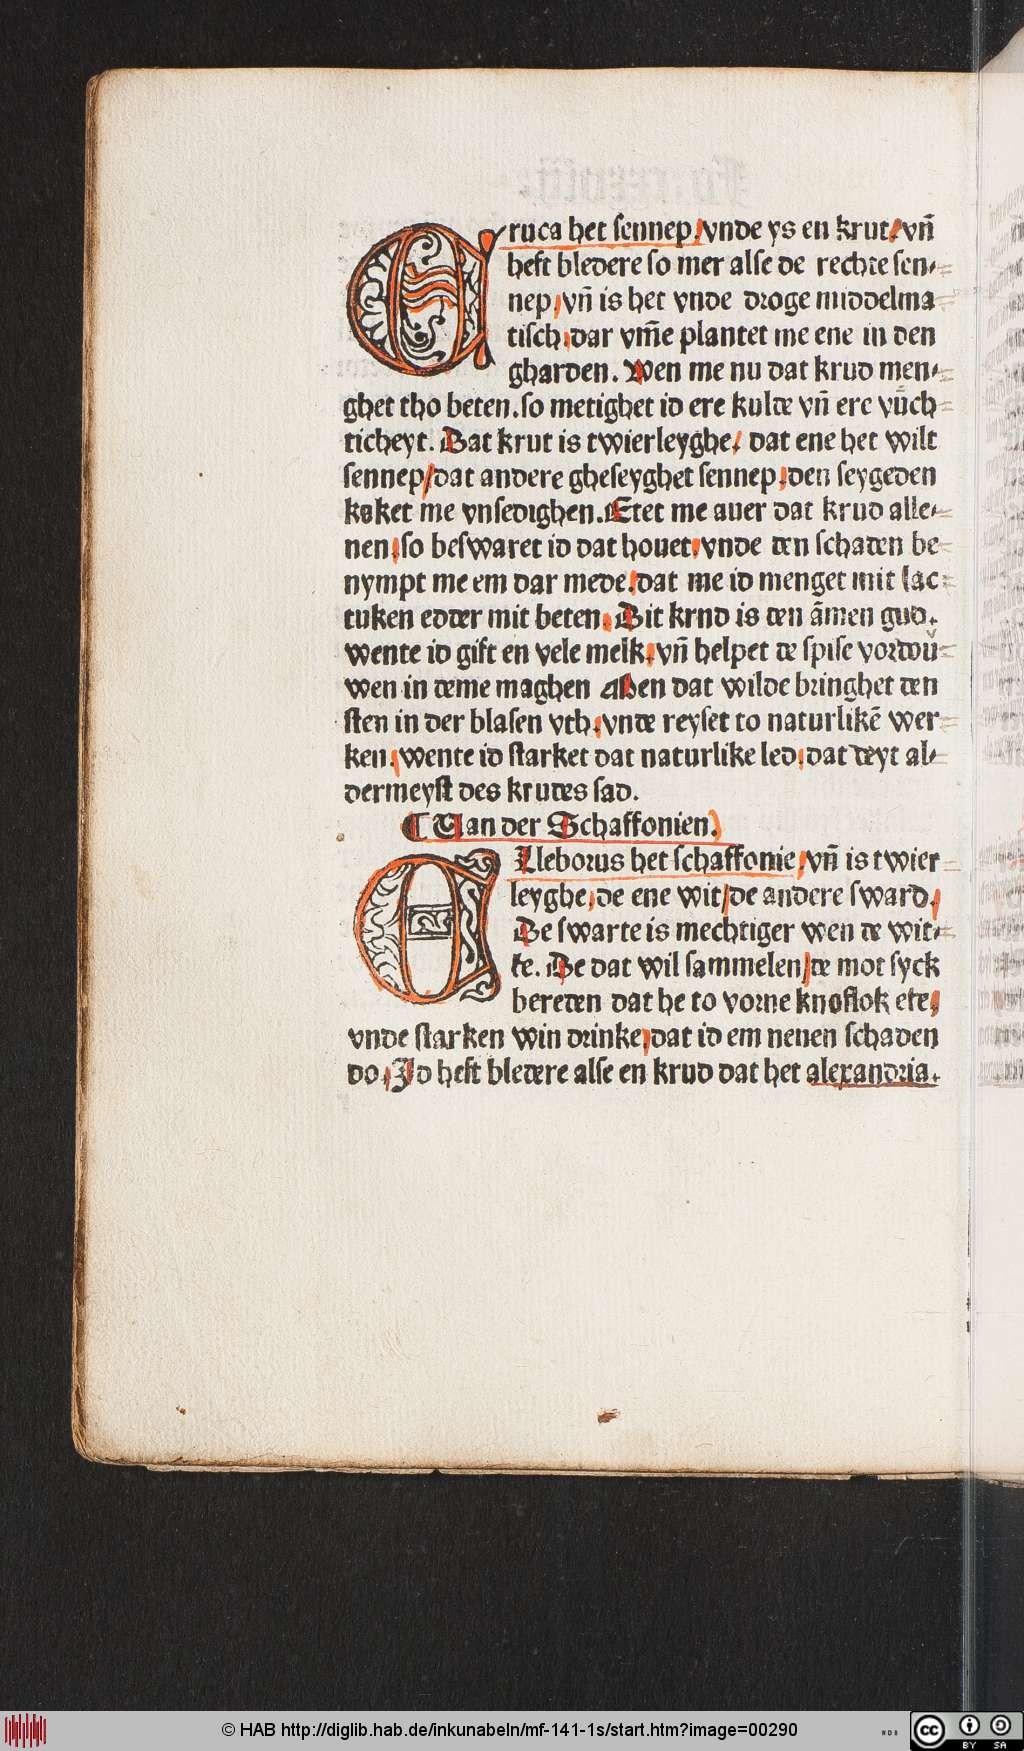 Eruca het sennep/vnde ys en krut/vn̄
heft bledere so mer alse de rechte sen⸗
nep/vn̄ is het vnde droge middelma
tisch/dar vm̄e plantet me ene in den
gharden. Wen me nu dat krud men⸗
ghet tho beten.so metighet id ere kulde vn̄ ere vůch
ticheyt. Dat krut is twierleyghe/ dat ene het wilt
sennep/dat andere gheseyghet sennep/den seygeden
koket me vnsedighen. Etet me auer dat krud alle⸗
nen/so beswaret id dat houet/vnde den schaden be
nympt me em dar mede/dat me id menget mit lac
tuken edder mit beten. Dit krnd is den āmen gud.
wente id gift en vele melk/vn̄ helpet de spise vordoů
wen in deme maghen Men dat wilde bringhet den
sten in der blasen vth/vnde reyset to naturlikē wer
ken/wente id starket dat naturlike led/dat deyt al⸗
dermeyst des krudes sad.
¶ Van der Schaffonien.
Elleborus het schaffonie/vn̄ is twier
leyghe/de ene wit/de andere sward.
De swarte is mechtiger wen de wit⸗
te. De dat wil sammelen/de mot syck
bereden dat he to vorne knoflok ete/
vnde starken win drinke/dat id em nenen schaden
do/Id heft bledere alse en krud dat het alexandria.
© HAB http://diglib.hab.de/inkunabeln/mf-141-1s/start.htm?image=00290
WDB
cc BY SA